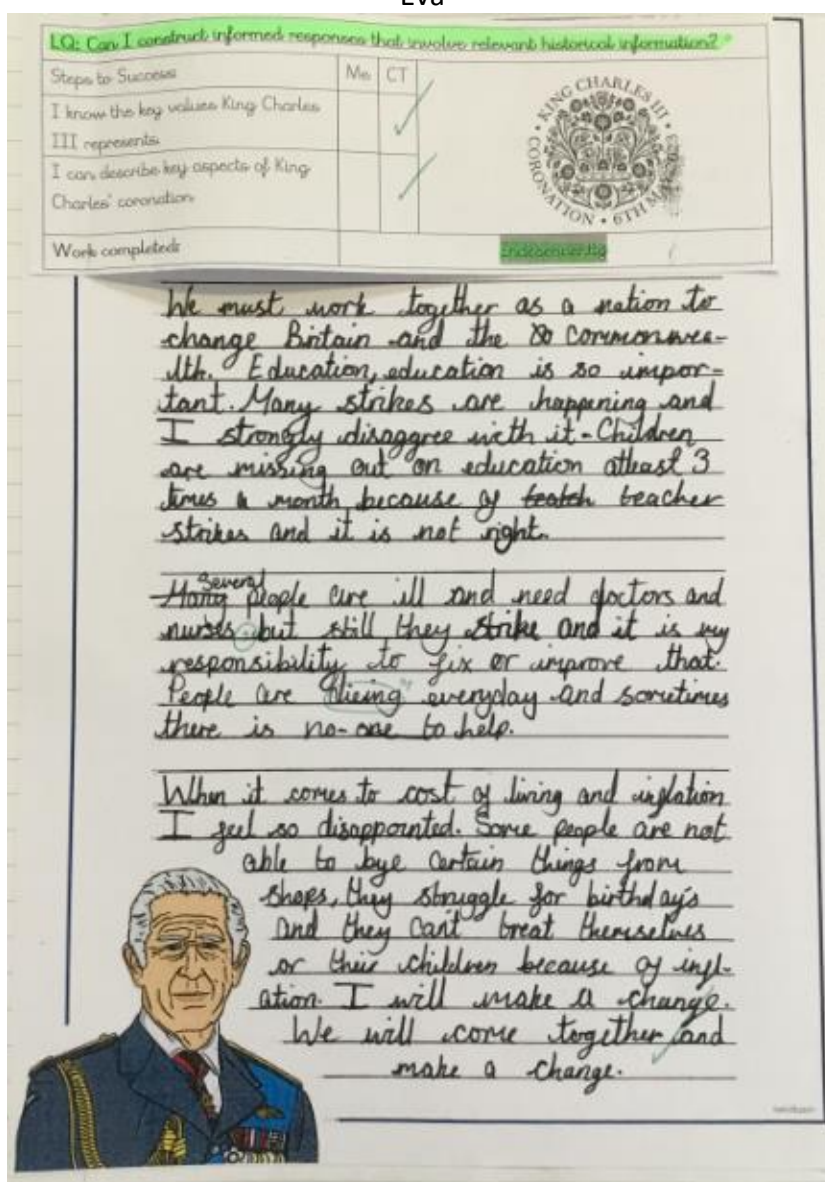 Eva
LQ: Can I construct informed responses that involve relevant historical information?
Steps to Success
Me
CT
I know the key values King Charles
III represents.
I can describe key aspects of King
Charles' coronation
Work completed:
Independently
KING CHARLES III
CORONATION • 6TH
We must work together as a nation to
change Britain and the Commonwea-
lth. Education, education is so impor-
tant. Many strikes are happening and
I strongly disaggree with it. Children
are missing out on education atleast 3
times a month because of teacher
strikes and it is not right.
Several
Many people are ill and need doctors and
nurses but still they strike and it is my
responsibility to fix or improve that.
People are dieing everyday and sometimes
there is no-one to help.
When it comes to cost of living and inflation
I feel so disappointed. Some people are not
able to bye certain things from
shops, they struggle for birthday's
and they can't treat themselves
or their children because of infl-
ation. I will make a change.
We will come together and
make a change.